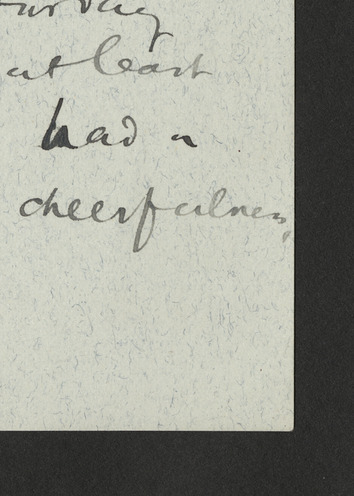 at least
had a
cheerfulness,